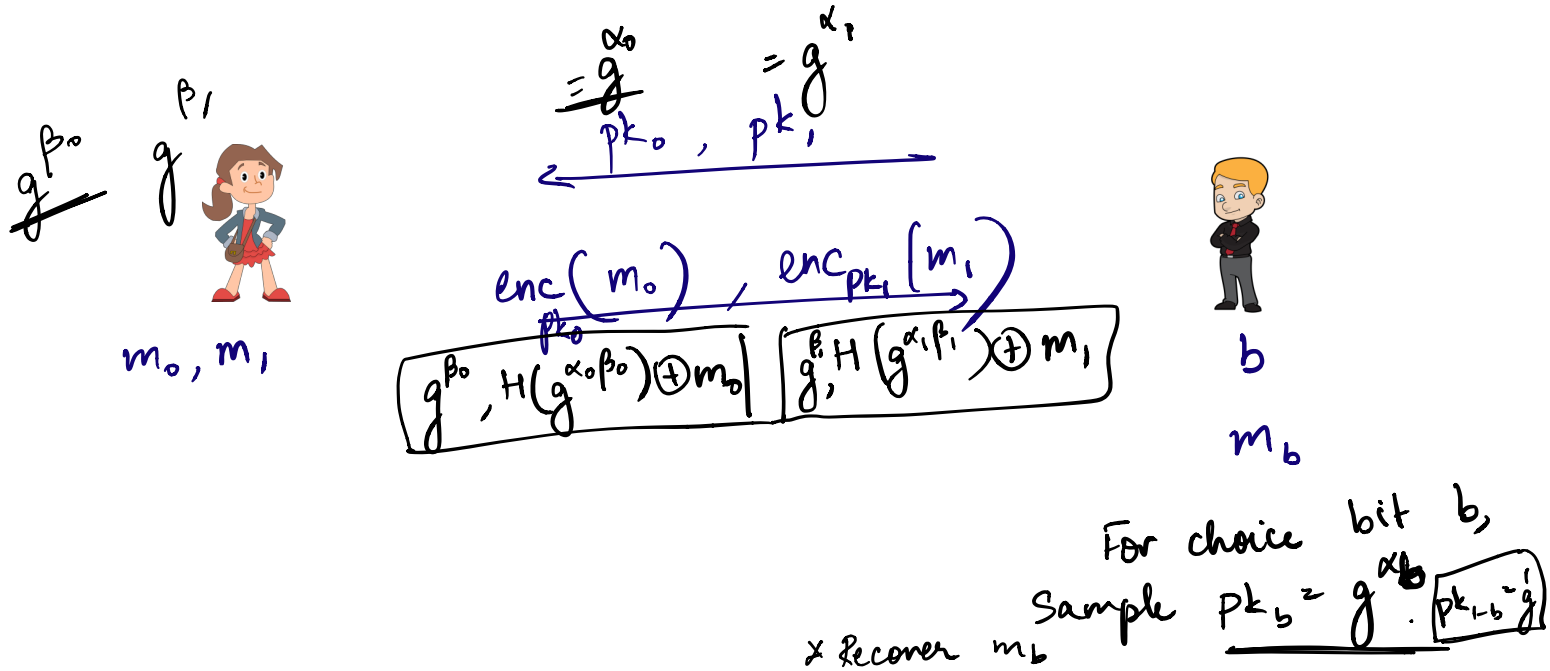 = g^{α_0} = g^{α_1}
pk_0 , pk_1
g^{β_0} g^{β_1}
enc_{pk_0}(m_0) , enc_{pk_1}(m_1)
m_0, m_1
g^{β_0}, H(g^{α_0β_0}) ⊕ m_0 g^{β_1}, H(g^{α_1β_1}) ⊕ m_1
b
m_b
For choice bit b,
Sample pk_b = g^{α_b}. pk_{1-b} = g'
* Recover m_b